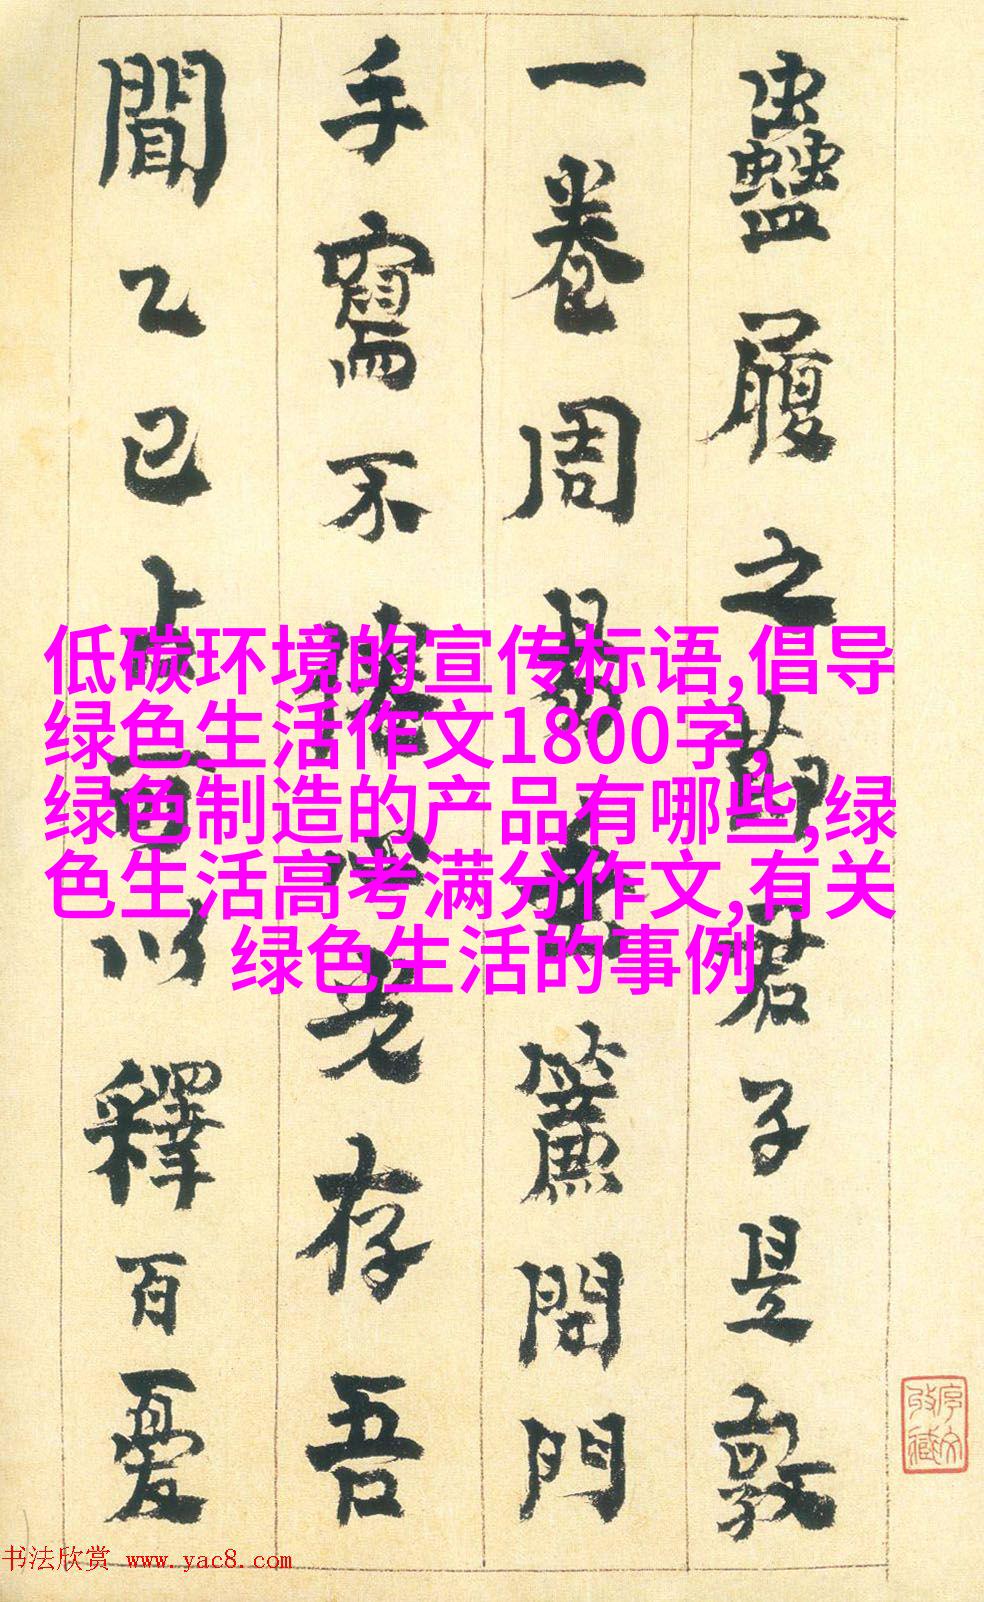 蠱履之節君子是敦
一卷周易垂簾閉門
手寫不倦心光存吾
聞乙巳占可以釋百憂
低碳环境的宣传标语,倡导
绿色生活作文1800字,
绿色制造的产品有哪些,绿
色生活高考满分作文,有关
绿色生活的事例
书法欣赏 www.yac8.com